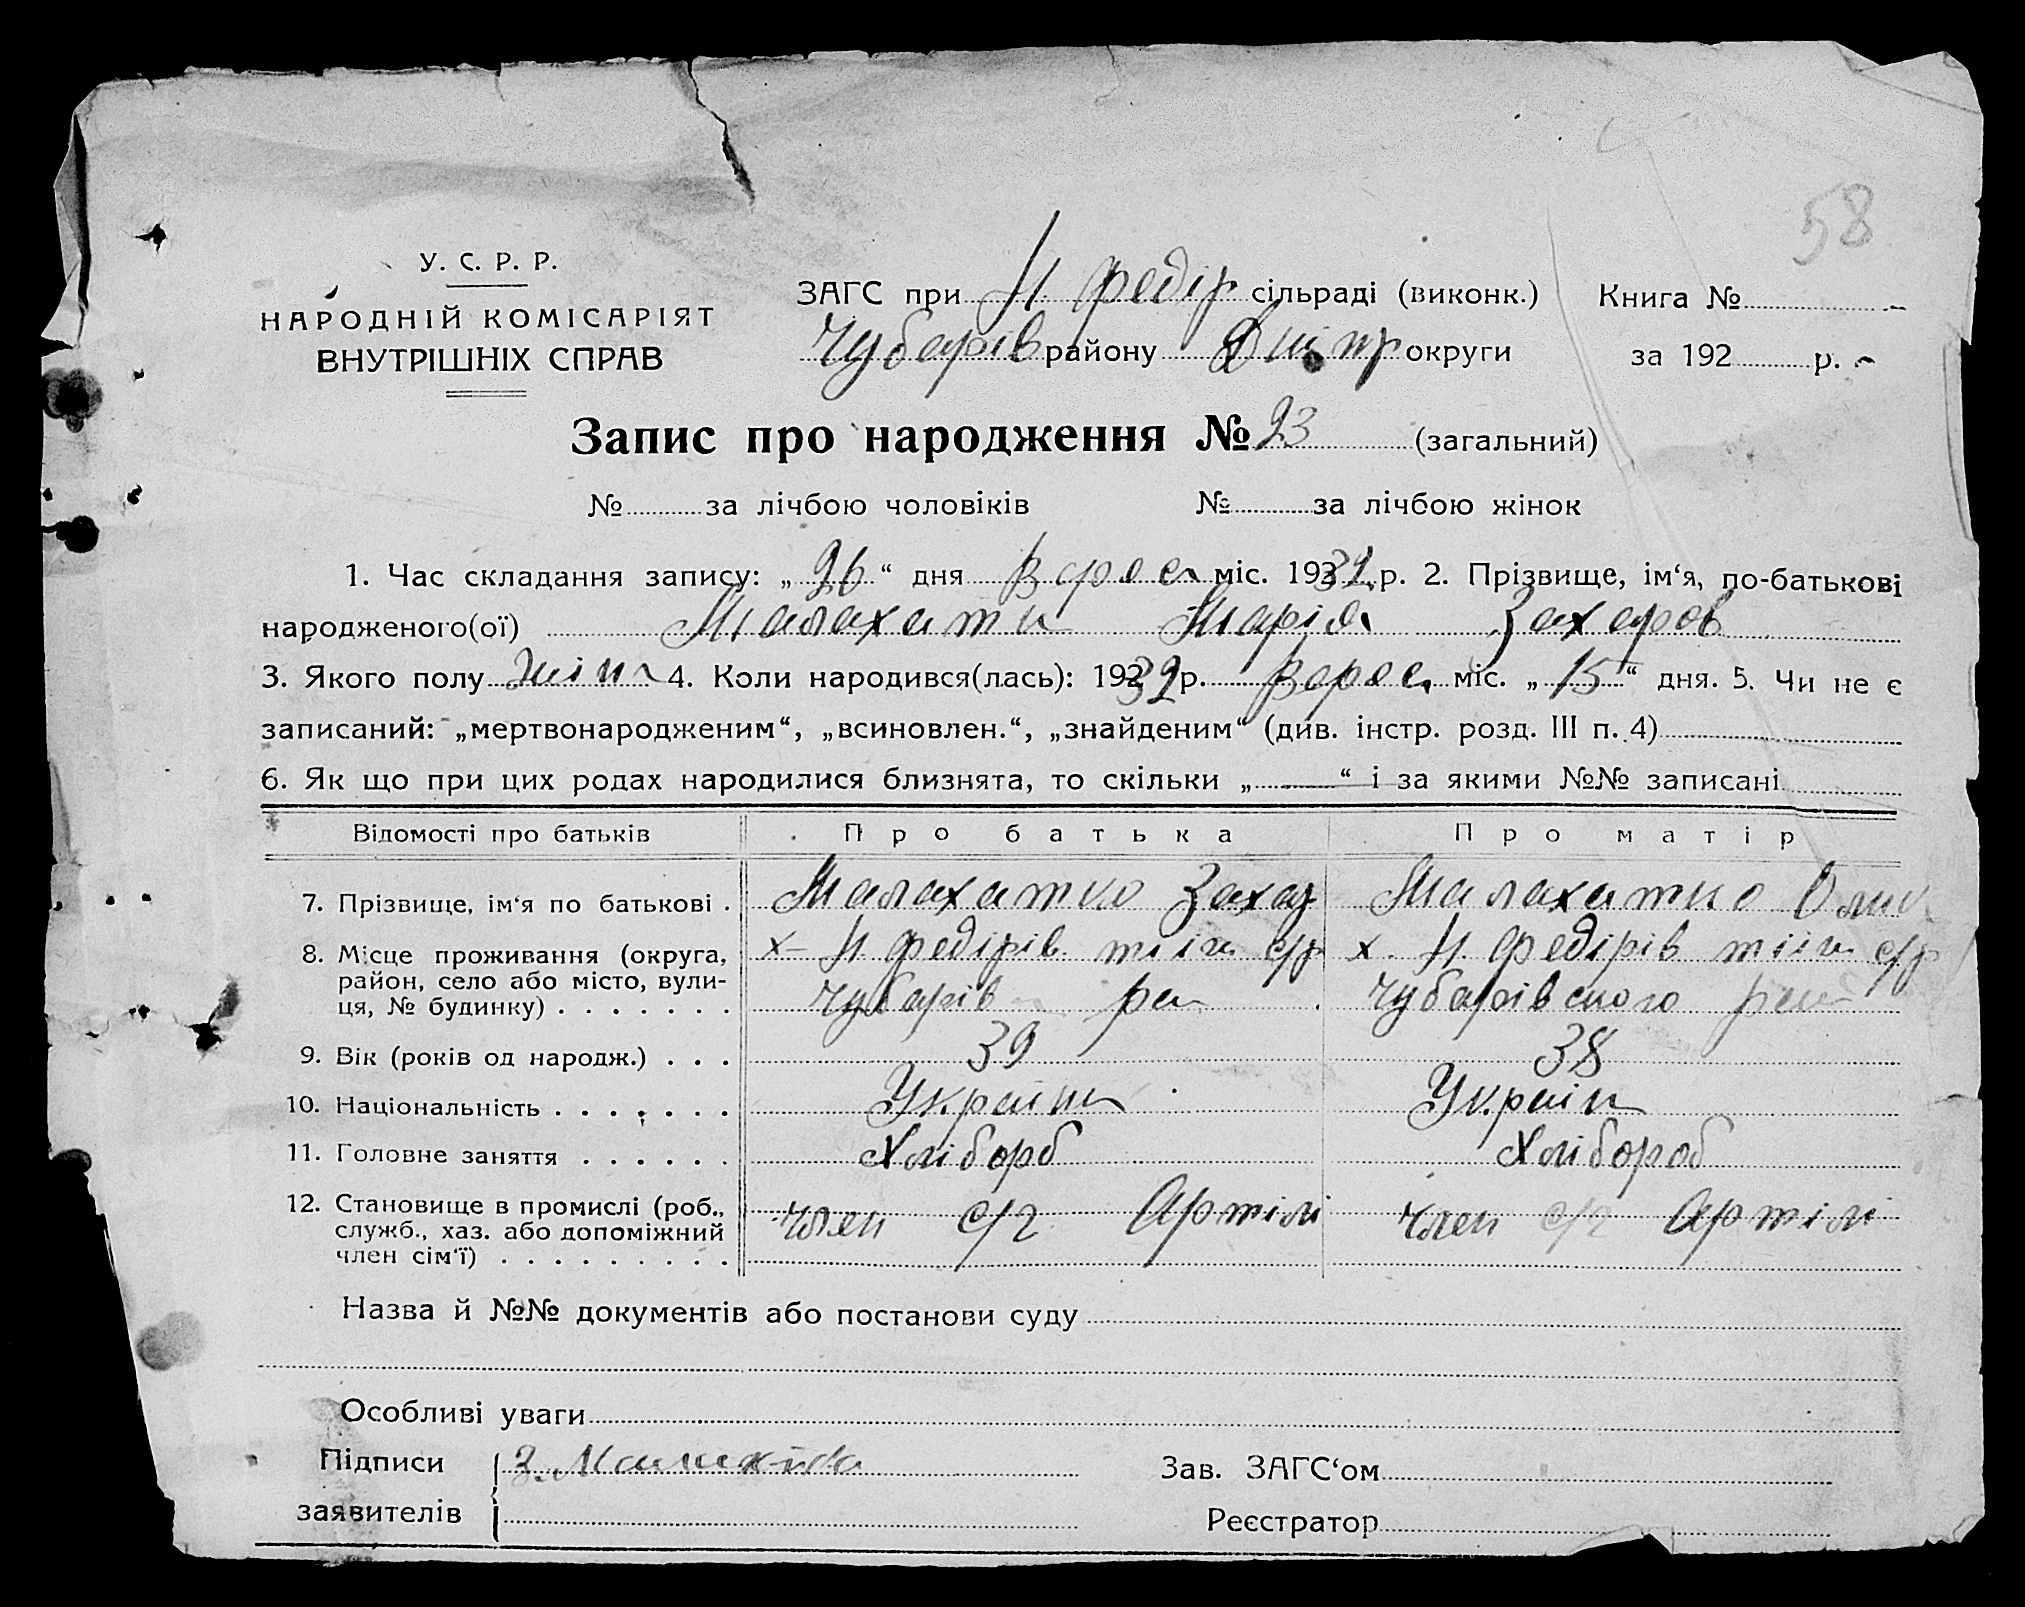 58
У. С. Р. Р.
НАРОДНІЙ КОМІСАРІЯТ
ВНУТРІШНІХ СПРАВ
ЗАГС при Н федір сільраді (виконк.)
Чубарів району Дніпр округи
Книга №
за 192 р.
Запис про народження № 23 (загальний)
№ за лічбою чоловіків № за лічбою жінок
1. Час складання запису: „ 26 “ дня Верес міс. 1932 р. 2. Прізвище, ім‘я, по-батькові
народженого(ої) Малахатк Марія Захаров
3. Якого полу жін 4. Коли народився(лась): 1932 р. Верес міс. „ 15 “ дня. 5. Чи не є
записаний: „мертвонародженим“, „всиновлен.“, „знайденим“ (див. інстр. розд. III п. 4)
6. Як що при цих родах народилися близнята, то скільки „ “ і за якими №№ записані
Відомості про батьків Про батька Про матір
7. Прізвище, ім‘я по батькові . Малахатко Захар Малахатко
8. Місце проживання (округа, район, село або місто, вулиця, № будинку) . . . . . . . х– Н федірів с/р Чубарів ра х. Н. федірів с/р Чубарівского ра
9. Вік (років од народж.) . . . 39 38
10. Національність . . . . . . . Україн Україн
11. Головне заняття . . . . . . Хліборб Хлібороб
12. Становище в промислі (роб., служб., хаз. або допоміжний член сім‘ї) . . . . . . . . . член с/г Артілі член с/г Артілі
Назва й №№ документів або постанови суду
Особливі уваги
Підписи
заявителів
З.
Зав. ЗАГС‘ом
Реєстратор